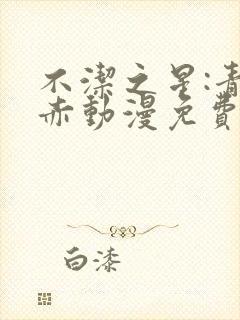 不潔之星:青
赤動漫免費
白漆